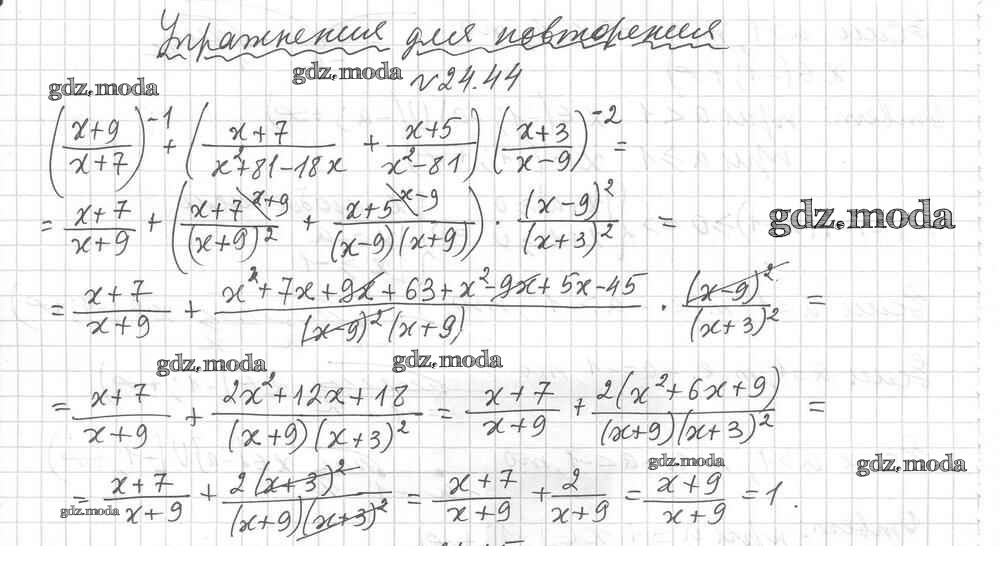 Упражнения для повторения
gdz.moda gdz.moda №24.44
((x+9)/(x+7))^-1 + ((x+7)/(x²+81-18x) + (x+5)/(x²-81)) ((x+3)/(x-9))^-2 =
= (x+7)/(x+9) + ((x+7 \x+9)/(x+9)² + (x+5 \x-9)/((x-9)(x+9))) · (x-9)²/(x+3)² = gdz.moda
= (x+7)/(x+9) + (x²+7x+9x+63+x²-9x+5x-45)/((x-9)²(x+9)) · (x-9)²/(x+3)² =
gdz.moda gdz.moda
= (x+7)/(x+9) + (2x²+12x+18)/((x+9)(x+3)²) = (x+7)/(x+9) + 2(x²+6x+9)/((x+9)(x+3)²) =
gdz.moda gdz.moda
= (x+7)/(x+9) + 2(x+3)²/((x+9)(x+3)²) = (x+7)/(x+9) + 2/(x+9) = (x+9)/(x+9) = 1.
gdz.moda